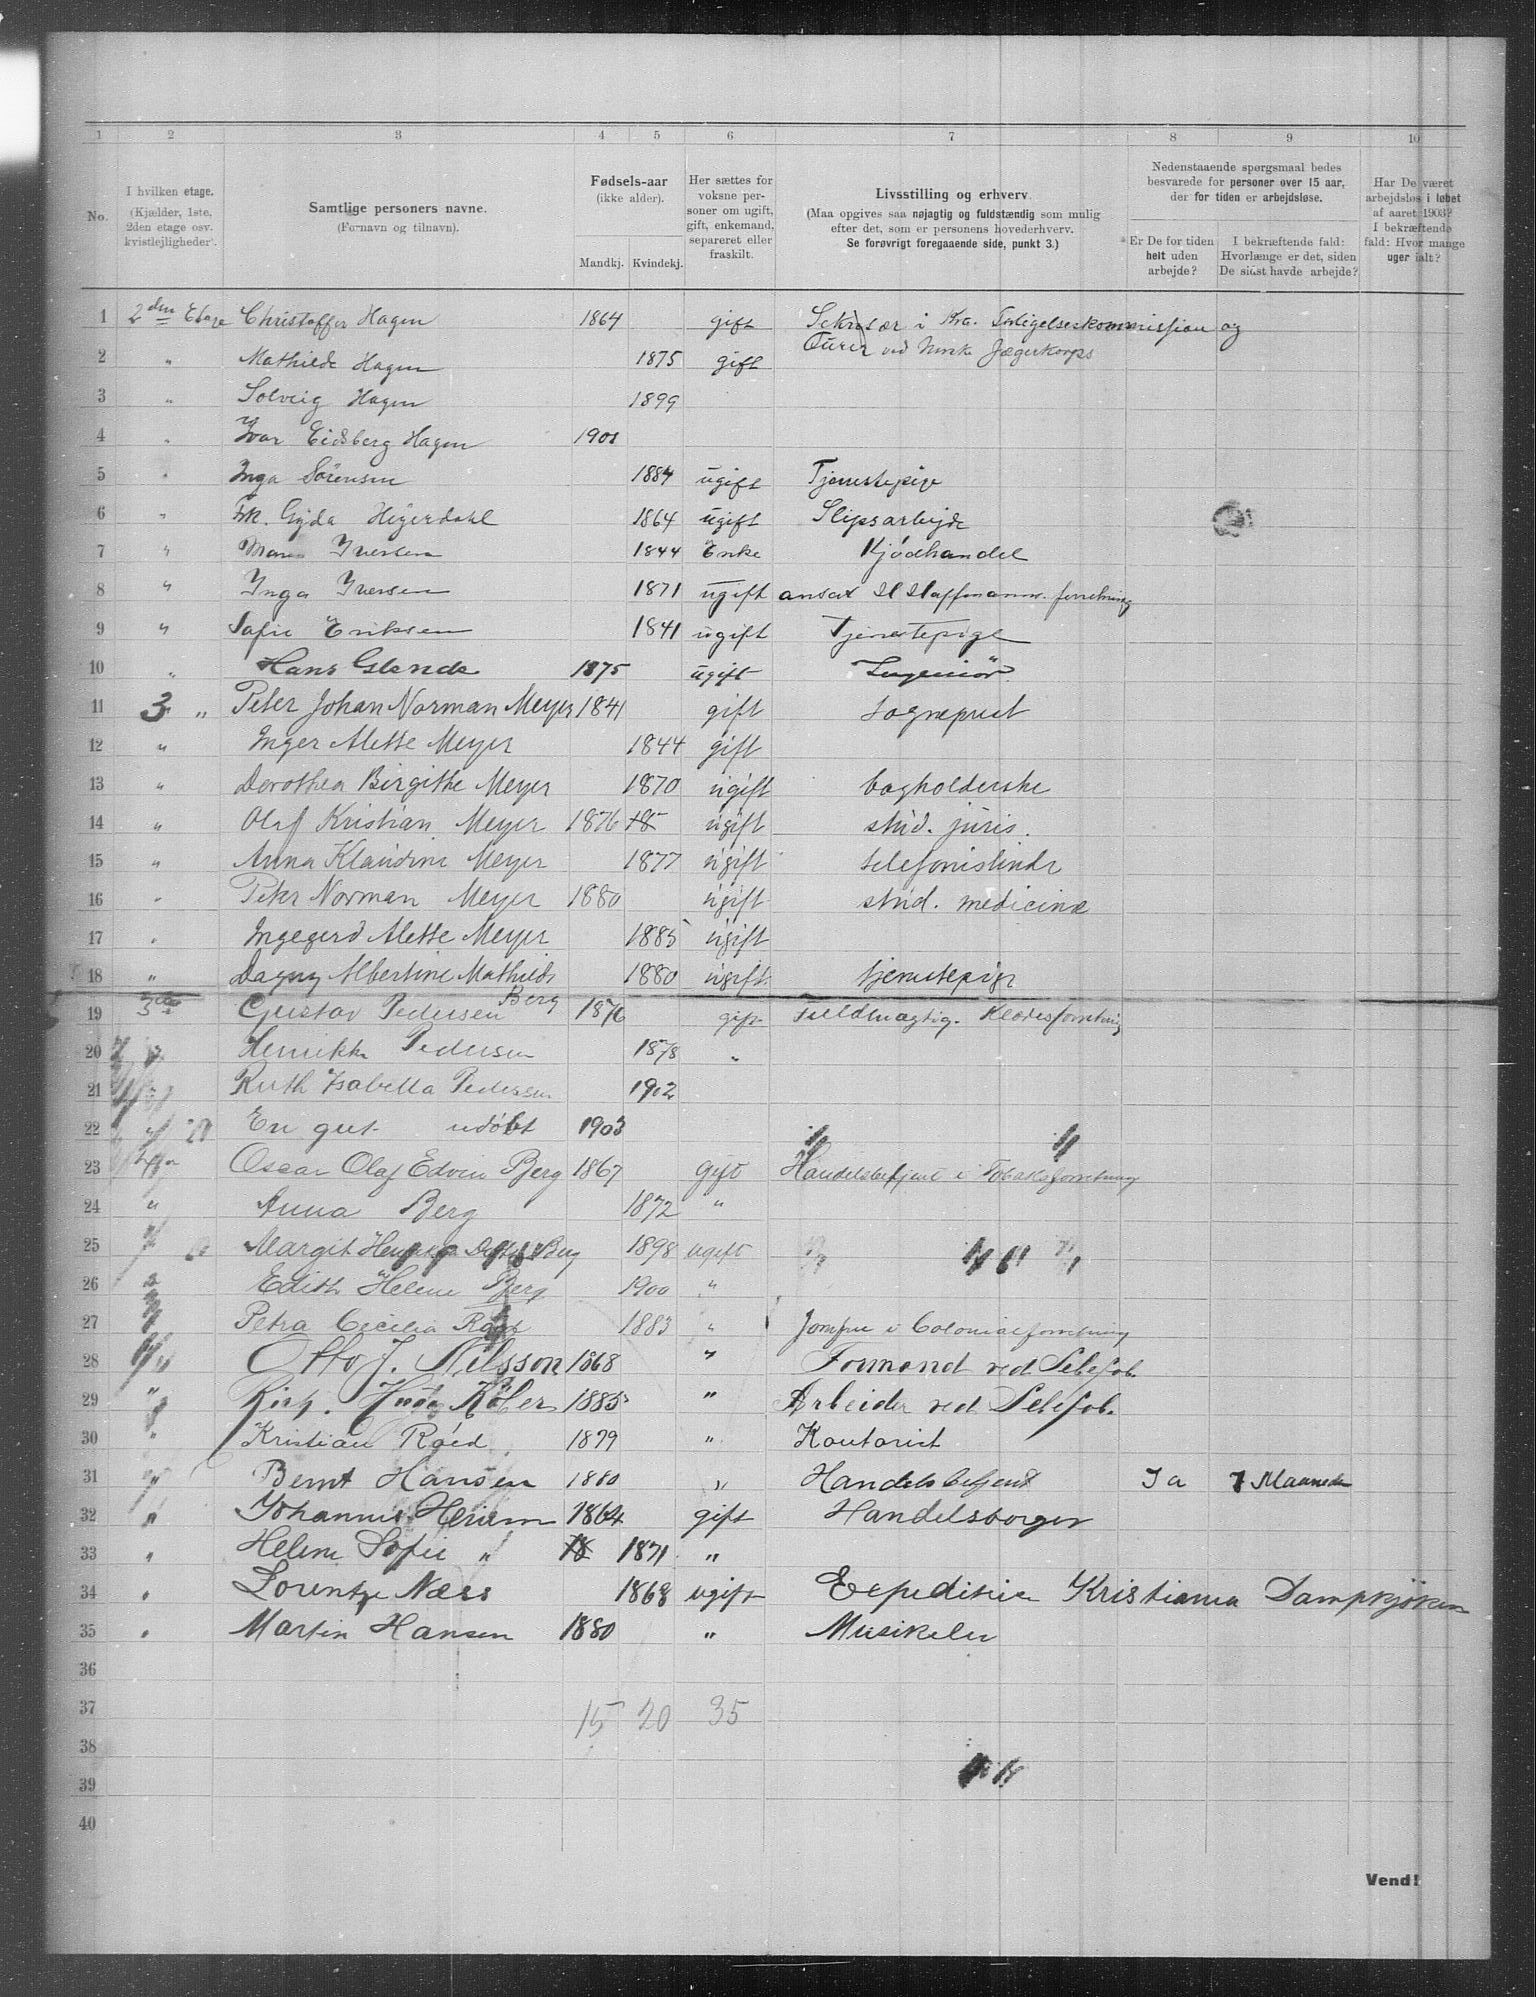 1 2 3 4 5 6 7 8 9 10
No.
I hvilken etage.
(Kjælder, 1ste,
2den etage osv.
kvistlejligheder).
Samtlige personers navne.
(Fornavn og tilnavn).
Fødsels-aar
(ikke alder).
Mandkj. Kvindekj.
Her sættes for
voksne per-
soner om ugift,
gift, enkemand,
separeret eller
fraskilt.
Livsstilling og erhverv.
(Maa opgives saa nøjagtig og fuldstændig som mulig
efter det, som er personens hovederhverv.
Se forøvrigt foregaaende side, punkt 3.)
Nedenstaaende spørgsmaal bedes
besvarede for personer over 15 aar,
der for tiden er arbejdsløse.
Er De for tiden
helt uden
arbejde?
I bekræftende fald:
Hvorlænge er det, siden
De sidst havde arbejde?
Har De været
arbejdsløs i løbet
af aaret 1903?
I bekræftende
fald: Hvor mange
uger ialt?
1 2den Etage Christoffer Hagen 1864 gift Sekretær i Kra. Forligelseskommission og
2 " Mathilde Hagen 1875 gift ved Norske Jægerkorps
3 " Solveig Hagen 1899
4 " Ivar Eidsberg Hagen 1901
5 " Inga Sörensen 1884 ugift Tjenestepige
6 " Frk. Gyda Heyerdahl 1864 ugift Slipsarbejde
7 " Iversen 1844 Enke Kjødhandel
8 " Inga Iversen 1871 ugift ansat forretning
9 " Sofie Eriksen 1841 ugift Tjenestepige
10 " Hans Glende 1875 ugift Ingeniör
11 3 " Peter Johan Norman Meyer 1841 gift sogneprest
12 " Inger Alette Meyer 1844 gift
13 " Dorothea Birgithe Meyer 1870 ugift bogholderske
14 " Olaf Kristian Meyer 1876 18 ugift stud. juris.
15 " Anna Klaudine Meyer 1877 ugift telefonistinde
16 " Peter Norman Meyer 1880 ugift stud. medicinæ
17 " Ingegerd Alette Meyer 1885 ugift
18 " Dagny Albertine Mathilde Berg 1880 ugift tjenestepige
19 3die Gustav Pedersen 1876 gift Fuldmægtig. Klædesforretning
20 " Henrikke Pedersen 1878 "
21 " Ruth Isabella Pedersen 1902
22 " En gut udöbt 1903
23 Oscar Olaf Edvin Berg 1867 gift Handelsbetjent i Tobaksforretning
24 " Anna Berg 1872 "
25 " Margit Berg 1898 ugift
26 " Edith Helene Berg 1900 "
27 " Petra Cecilia 1883 " Jomfru i Colonialforretning
28 " Otto J. Nilsson 1868 " Formand ved Sebefab.
29 " 1885 " Arbeider ved Sebefab.
30 " Kristian Røed 1879 " Kontorist
31 " Bernt Hansen 1880 " Handelsbetjent Ja 7 Maaneder
32 " Johannes 1864 gift Handelsborger
33 " Helene Sofie " 18 1871 "
34 " Lorentze Næss 1868 ugift Expeditrice Kristiania Dampkjøken
35 " Martin Hansen 1880 " Musikelev
36
37 15 20 35
38
39
40
Vend!